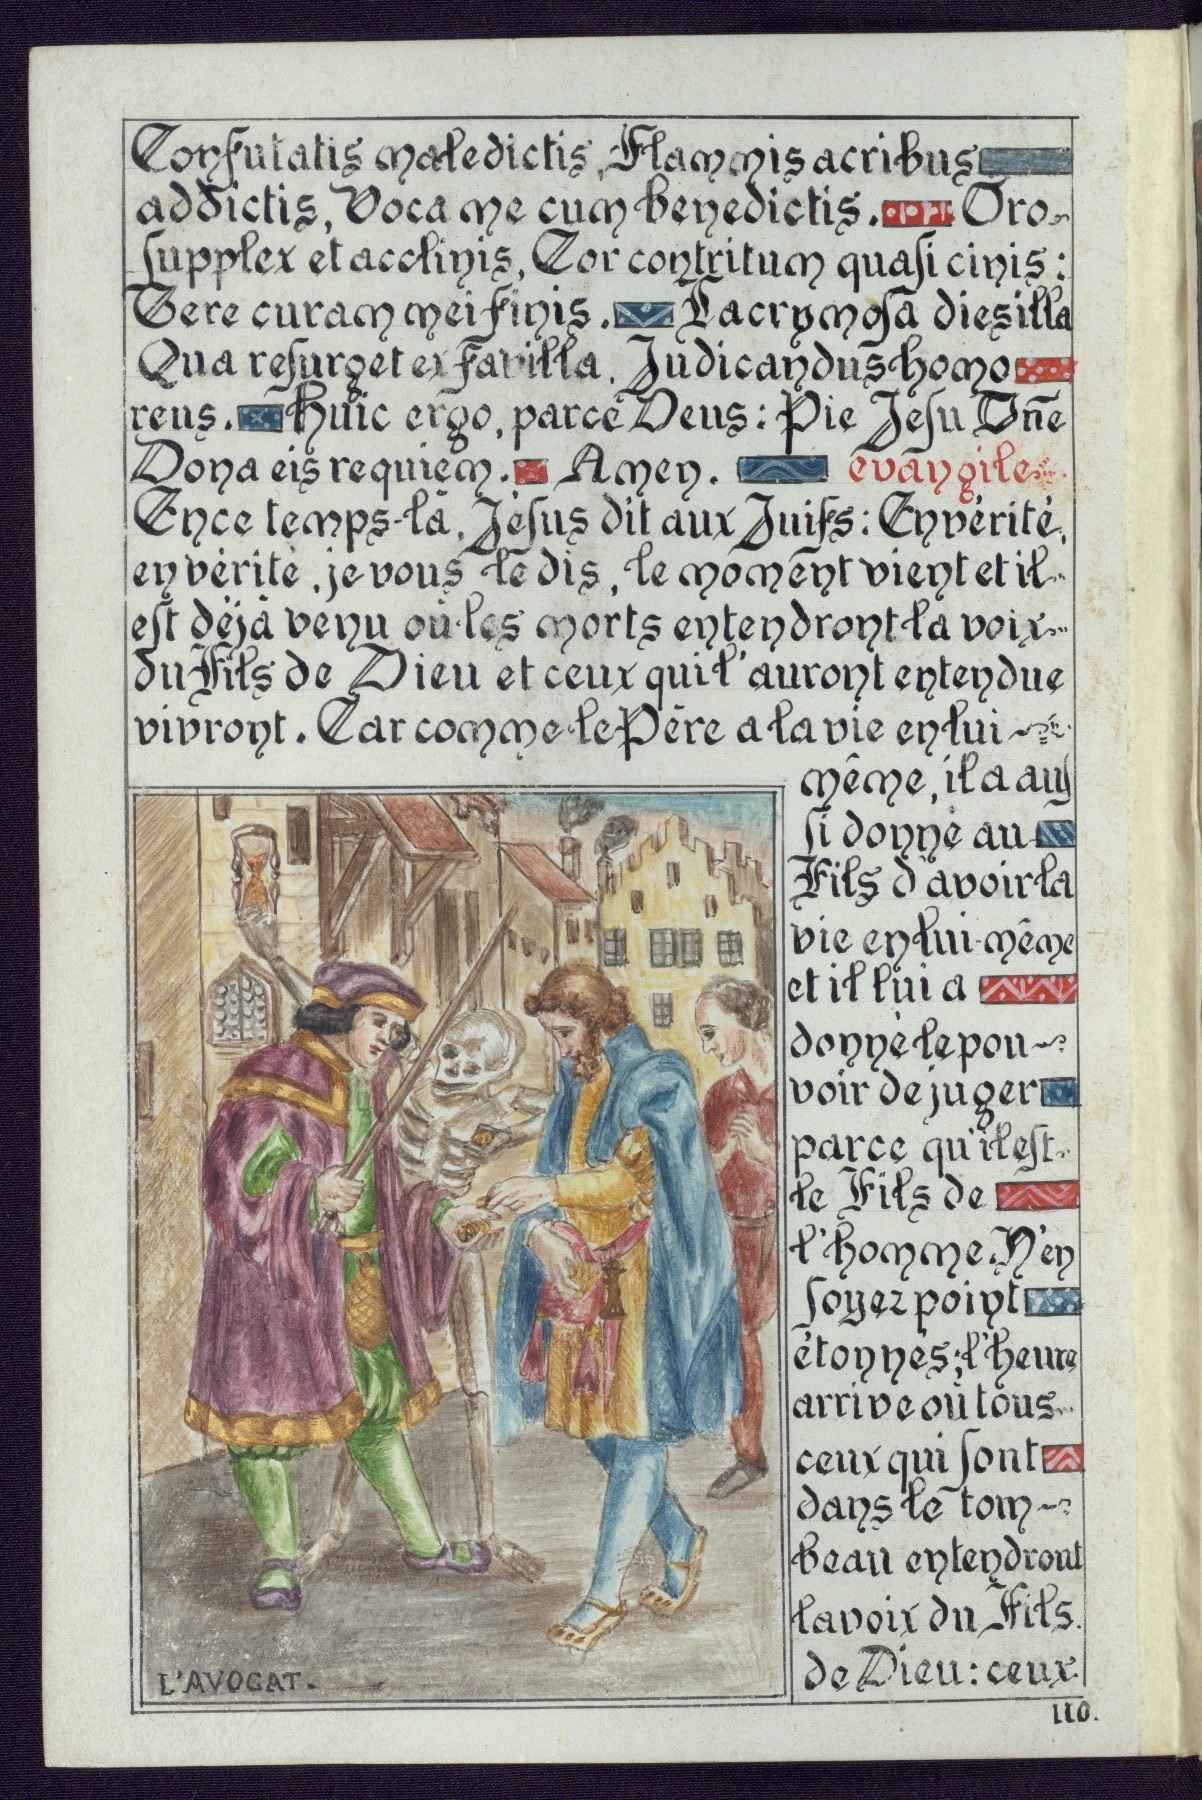 Confutatis maledictis, Flammis acribus
addictis, Voca me cum benedictis. Oro
supplex et acclinis, Cor contritum quasi cinis:
Gere curam mei finis. Lacrymosa dies illa
Qua resurget ex favilla, Judicandus homo
reus. Huic ergo, parce Deus: Pie Jesu Dñe
Dona eis requiem. Amen. evangile
En ce temps-là, Jésus dit aux Juifs: En vérité,
en vérité, je vous le dis, le moment vient et il
est déjà venu où les morts entendront la voix
du Fils de Dieu et ceux qui l'auront entendue
vivront. Car comme le Père a la vie en lui
même, il a aus
si donné au
Fils d'avoir la
vie en lui-même
et il lui a
donné le pou
voir de juger
parce qu'il est
le Fils de
l'homme. N'en
soyez point
étonnés; l'heure
arrive où tous
ceux qui sont
dans le tom
beau entendront
la voix du Fils
de Dieu: ceux
L'AVOCAT.
110.